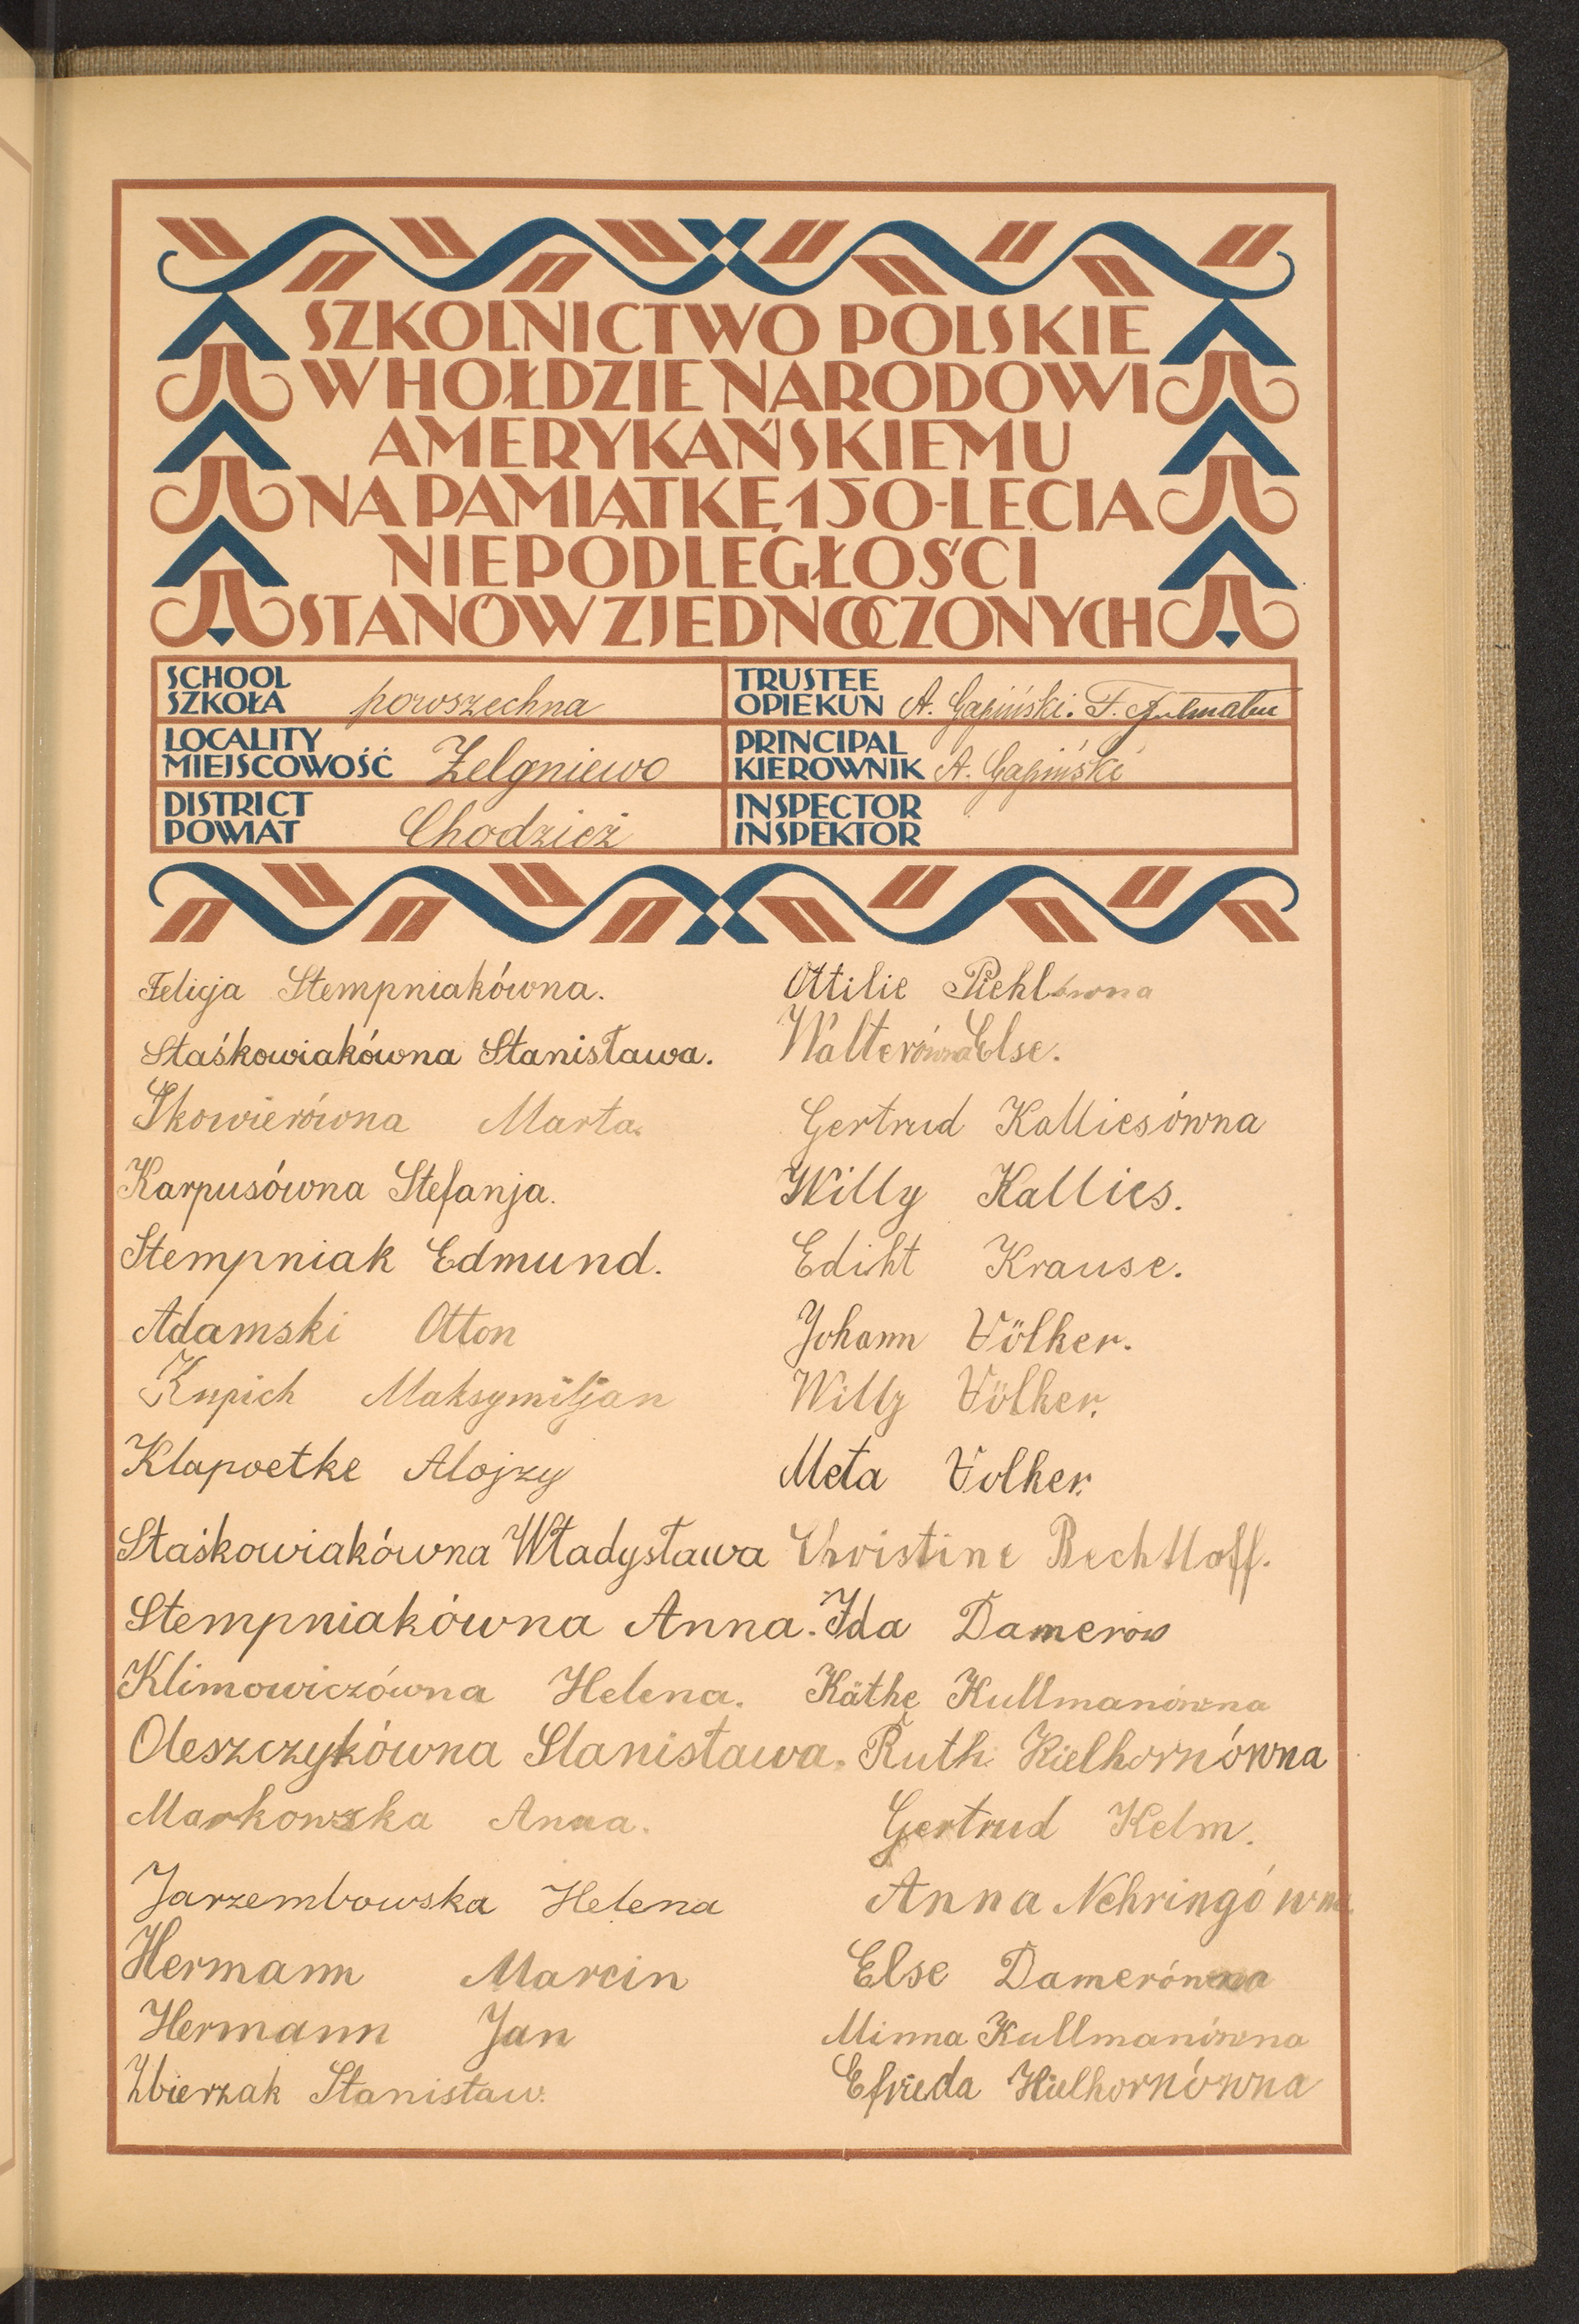 SZKOLNICTWO POLSKIE
W HOŁDZIE NARODOWI
AMERYKAŃSKIEMU
NA PAMIĄTKĘ 150-LECIA
NIEPODLEGŁOŚCI
STANÓW ZJEDNOCZONYCH
SCHOOL
SZKOŁA powszechna
TRUSTEE
OPIEKUN A. Gapiński. F.
LOCALITY
MIEJSCOWOŚĆ Zelgniewo
PRINCIPAL
KIEROWNIK A. Gapiński
DISTRICT
POWIAT Chodzież
INSPECTOR
INSPEKTOR
Felicja Stempniakówna.
Staśkowiakówna Stanisława.
Skowierówna Marta.
Karpusówna Stefanja.
Stempniak Edmund.
Adamski Otton
Kupich Maksymiljan
Klapoetke Alojzy
Staśkowiakówna Władysława
Stempniakówna Anna.
Klimowiczówna Helena.
Oleszczykówna Stanisława.
Markowska Anna.
Jarzembowska Helena
Hermann Marcin
Hermann Jan
Zbierzak Stanisław.
Ottilie Piehlówna
Walterówna Else.
Gertrud Kalliesówna
Willy Kallies.
Ediht Krause.
Johann Völker.
Willy Völker.
Meta Volker.
Christine Bechtloff.
Ida Damerow
Käthe Kullmanówna
Ruth Kielhornówna
Gertrud Kelm.
Anna Nehringówna
Else Damerówna
Minna Kullmanówna
Efrieda Kielhornówna